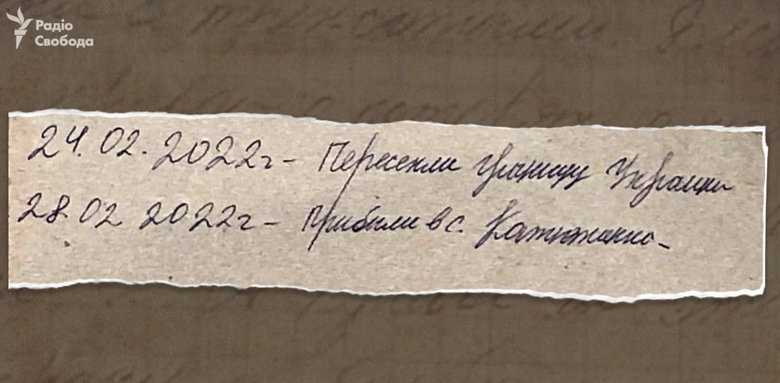 Радіо
Свобода
24.02.2022г - Пересекли границу Украины
28.02 2022г - Прибыли в с. Катюжанка